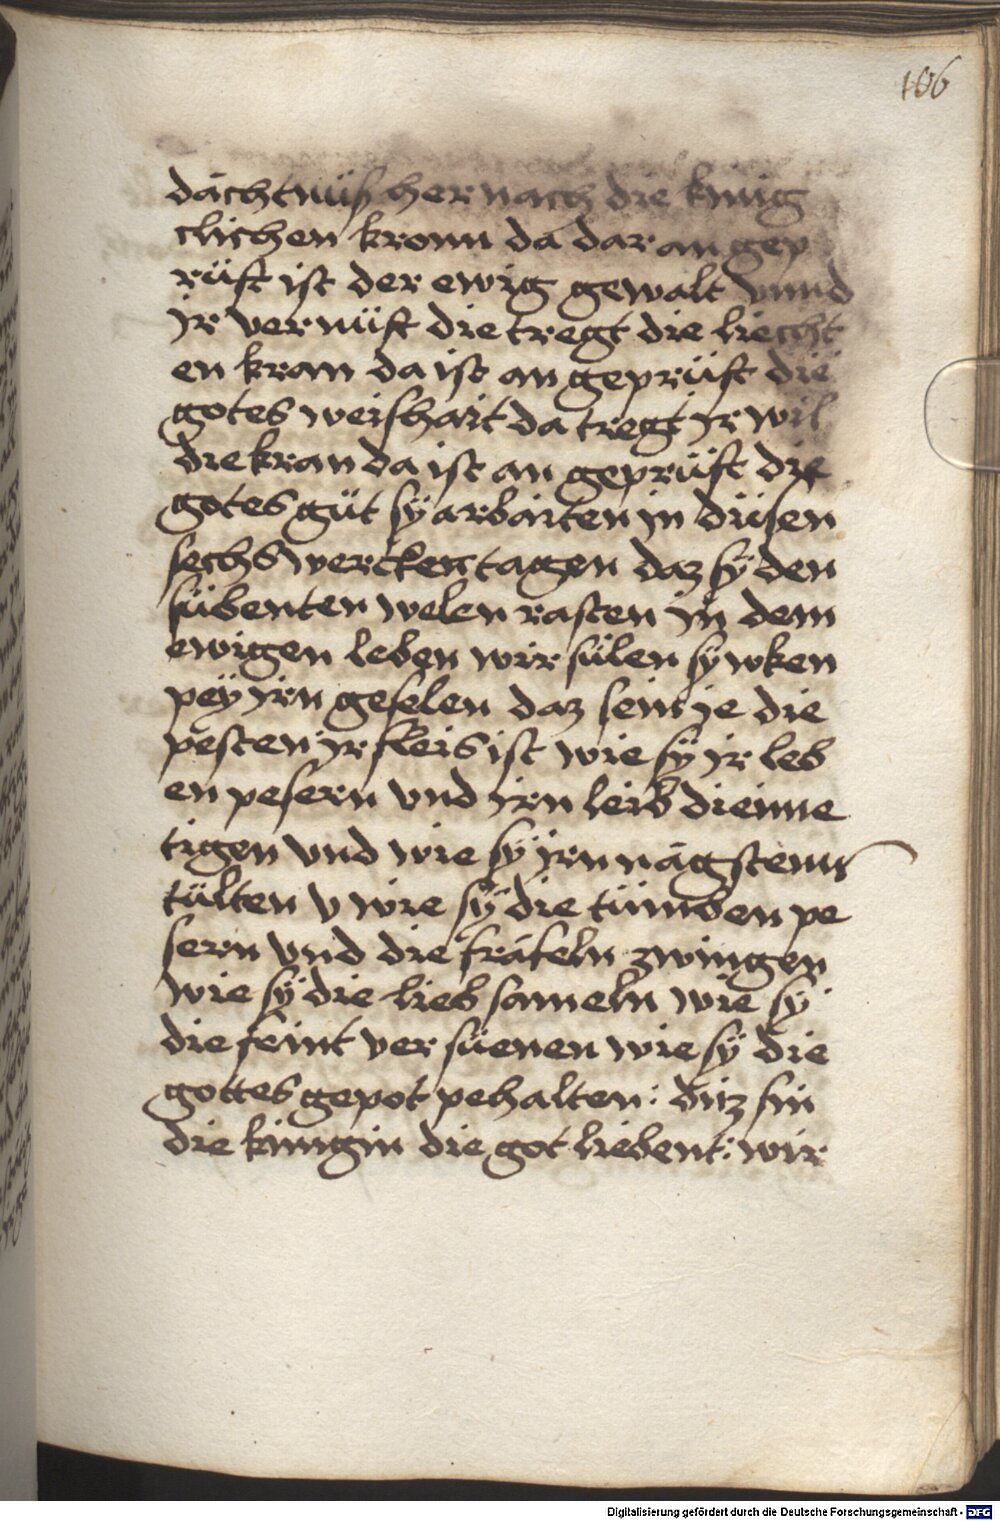 106
dächtnüß her nach die künig
clichen kronn da dar an gep
rüft ist der ewig gewalt vnnd
jr vernüft die tregt die liecht
en kran da ist an geprüft die
gotes weishait da tregt jr wil
die kran da ist an geprüft die
gotes güt sÿ arbaiten jn düsen
sechs wercken tagen daz sÿ den
sübenten welen rasten jn dem
ewigen leben wir sülen sÿ wken
peÿ jrn geselen daz sein je die
pesten jr fleis ist wie sÿ jr leb
en pesern vnd jrn leib diemue
tigen vnd wie sÿ jrn nägsten
tülten v wie sÿ die tümben pe
sern vnd die fräfeln zwingen
wie sÿ die lieb sameln wie sÿ
die feint ver süenen wie sÿ die
gottes gepot pehalten : ditz sin
die künigin die got liebent : wir
Digitalisierung gefördert durch die Deutsche Forschungsgemeinschaft - DFG